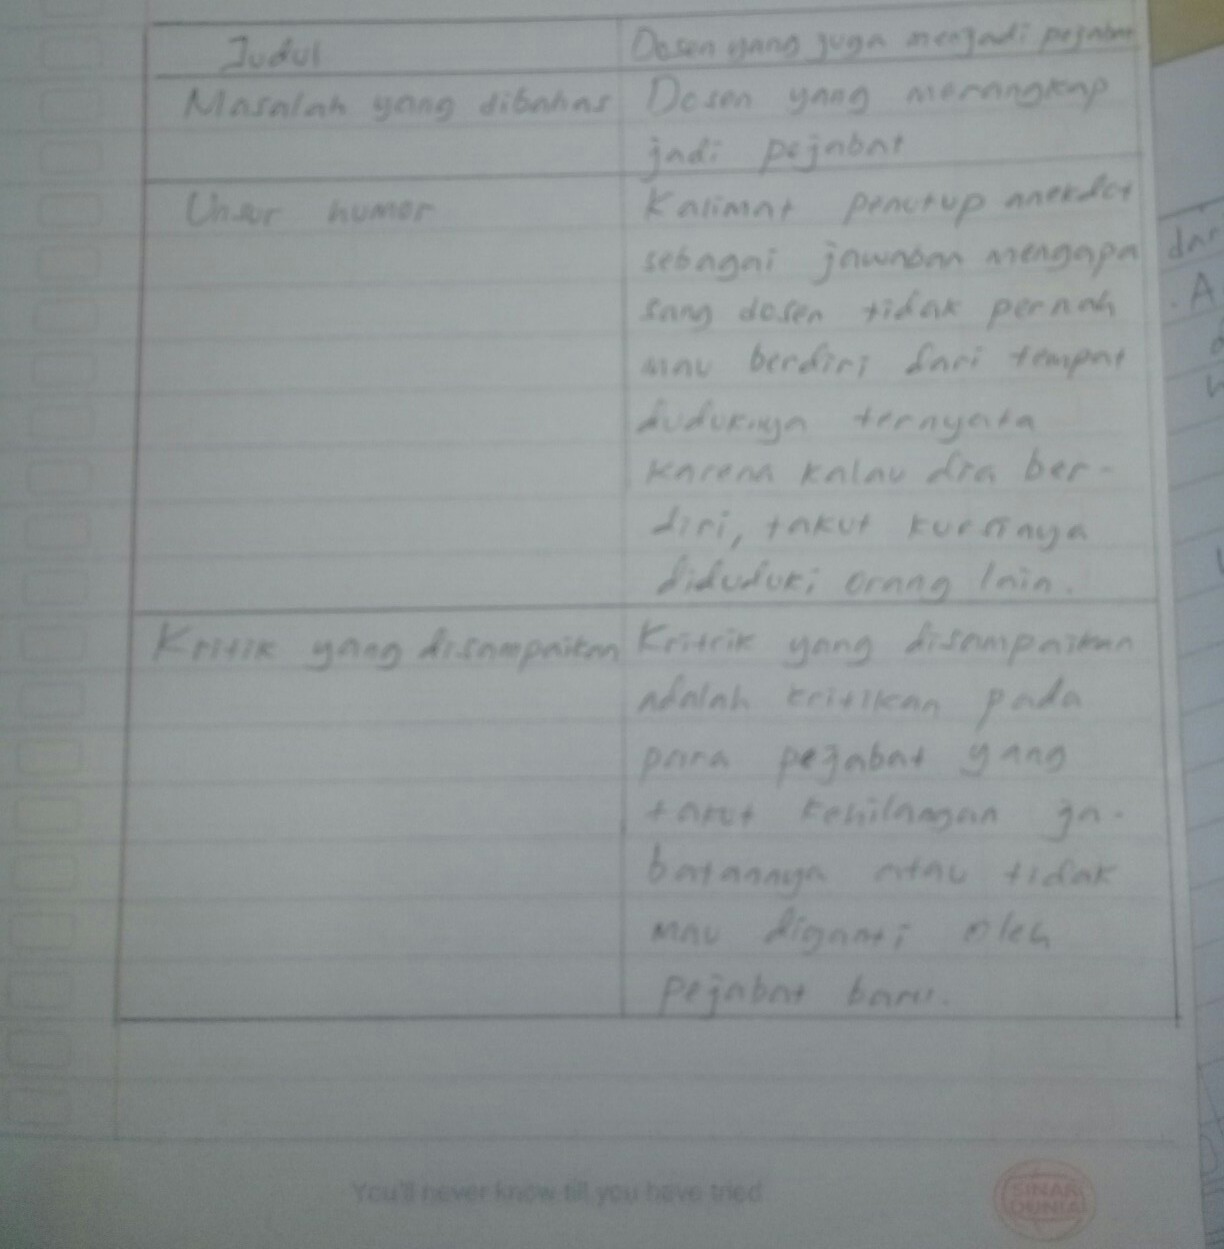 Judul
Dosen yang juga menjadi pejabat
Masalah yang dibahas
Dosen yang merangkap
jadi pejabat
Unsur humor
Kalimat penutup anekdot
sebagai jawaban mengapa
sang dosen tidak pernah
mau berdiri dari tempat
duduknya ternyata
karena kalau dia ber-
diri, takut kursinya
diduduki orang lain.
Kritik yang disampaikan
Kritrik yang disampaikan
adalah kritikan pada
para pejabat yang
takut kehilangan ja-
batannya atau tidak
mau diganti oleh
pejabat baru.
You'll never know till you have tried
SINAR
DUNIA